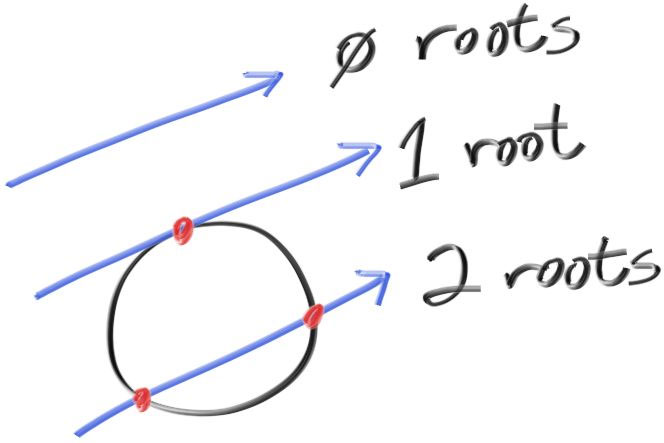 0 roots
1 root
2 roots